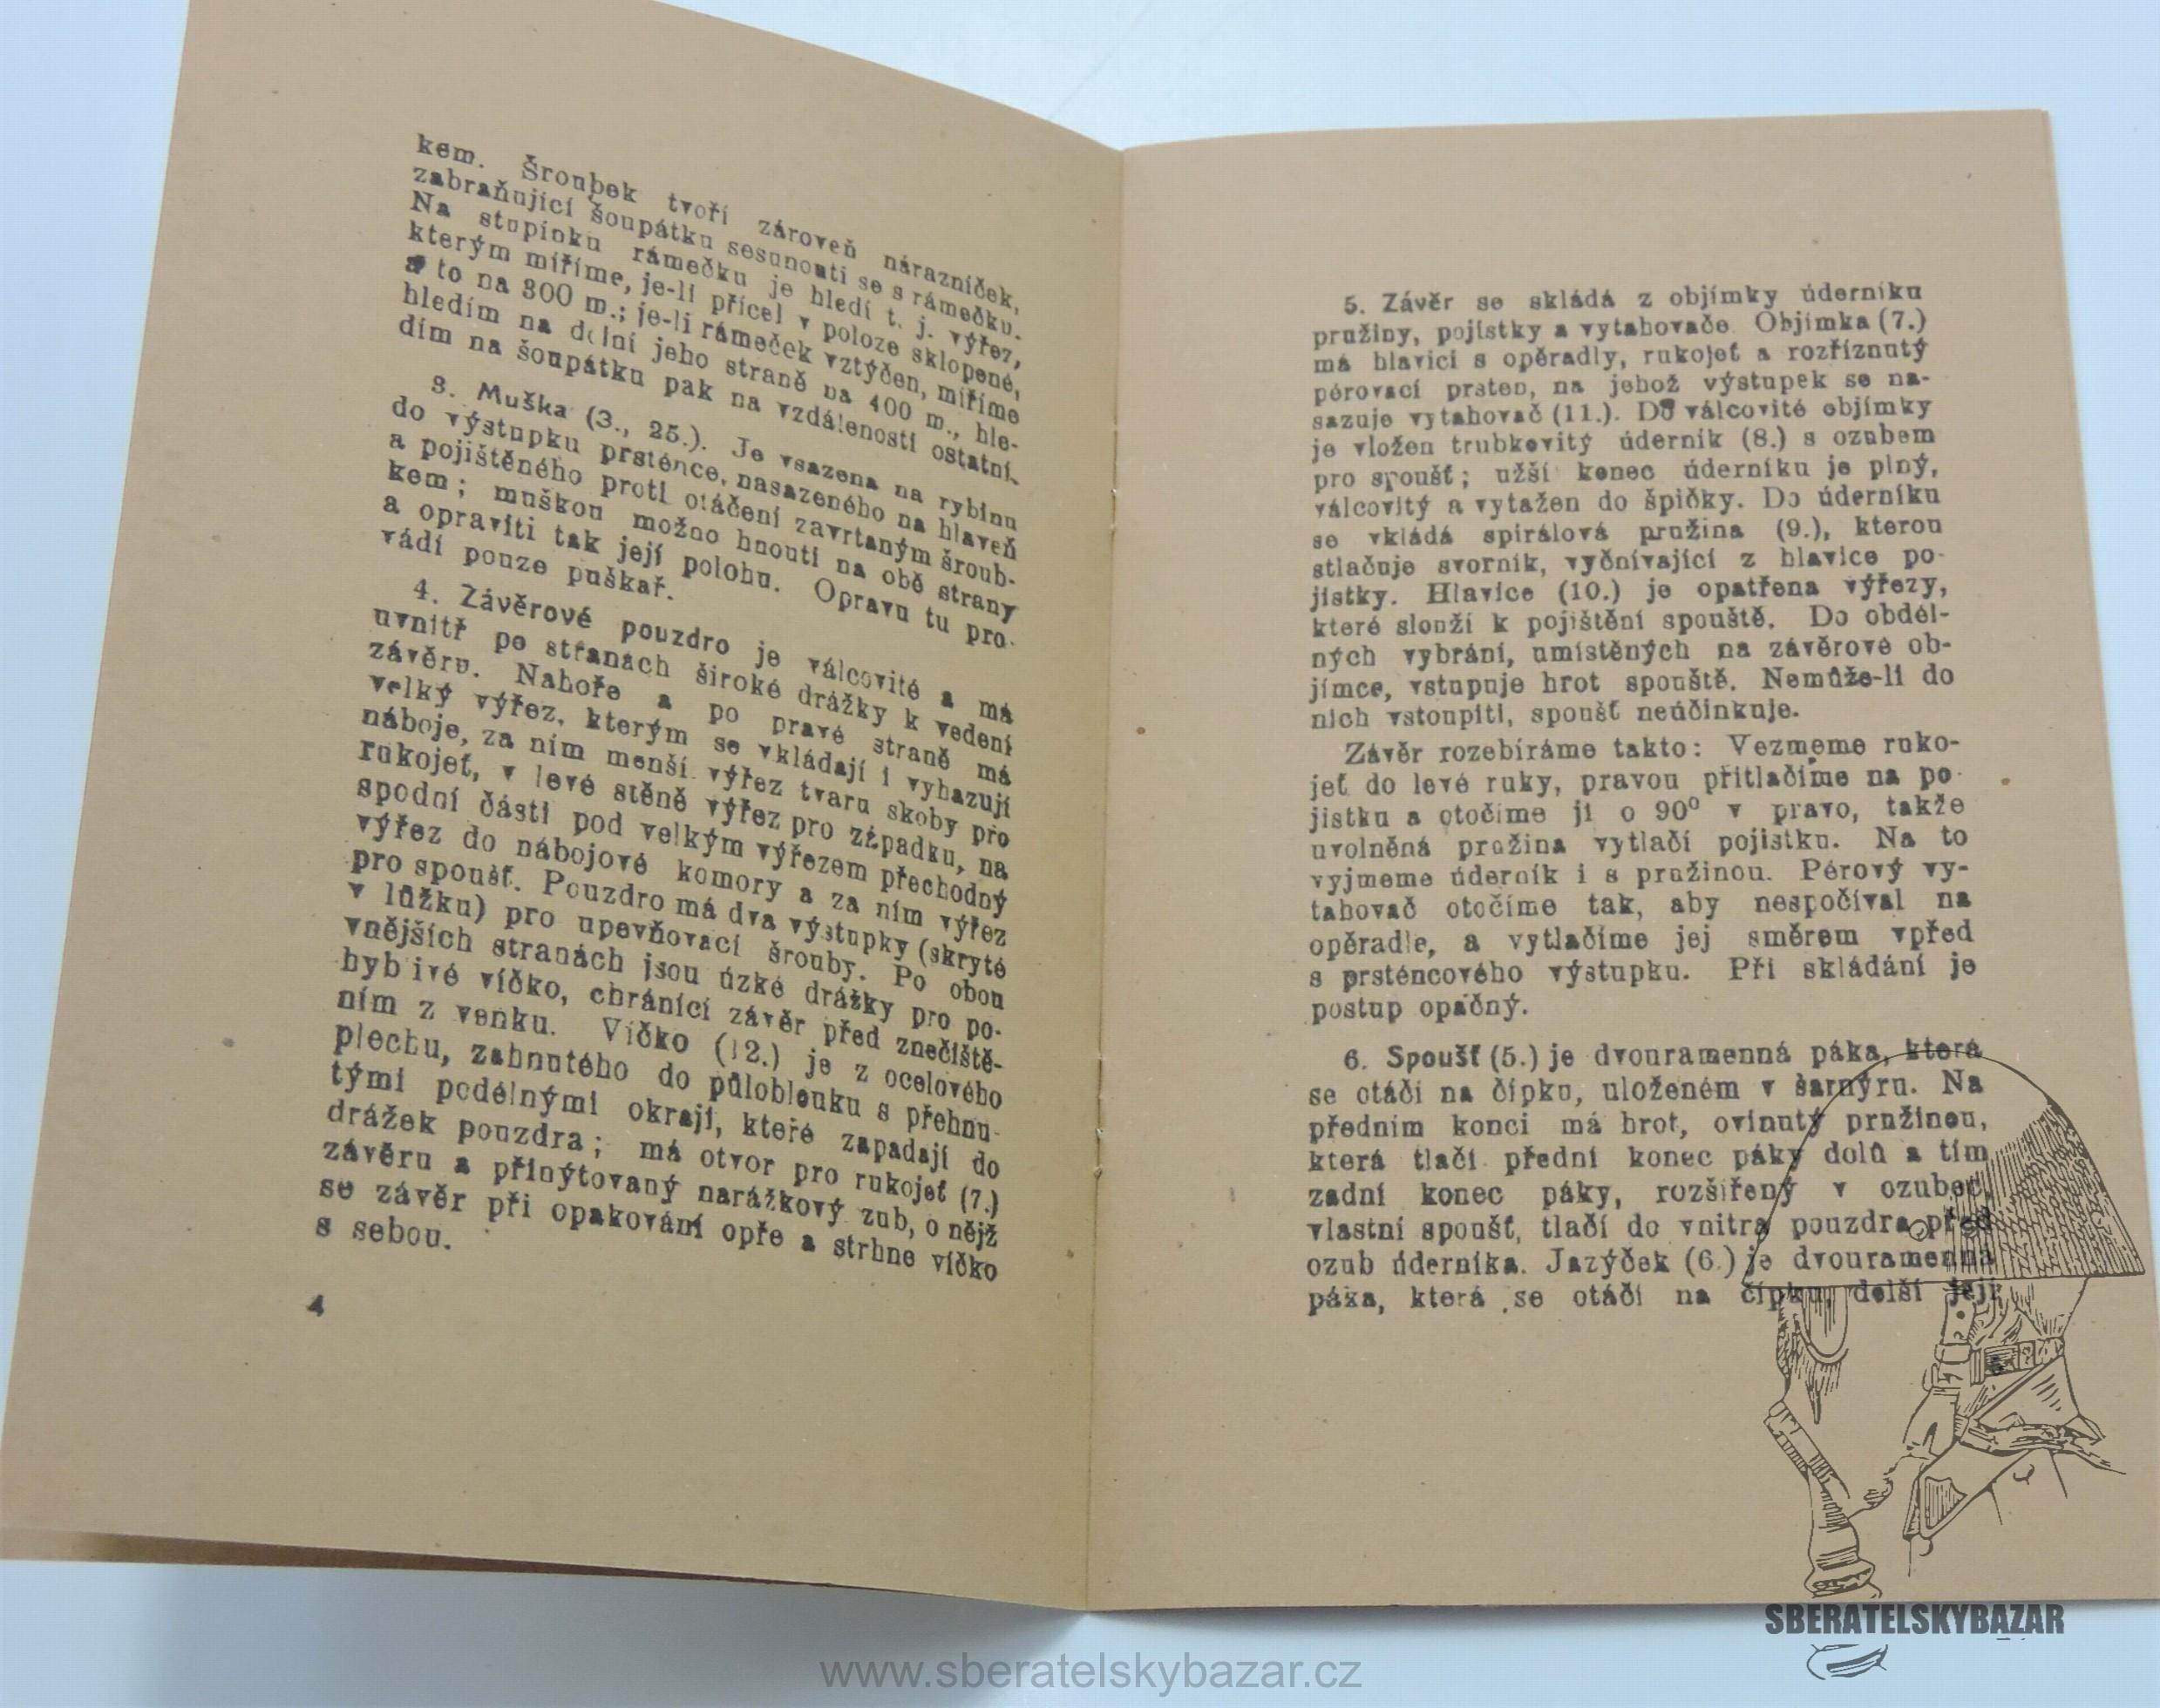 kem. Šroubek tvoří zároveň nárazníček,
zabraňující šoupátku sesunouti se s rámečku.
Na stupínku rámečku je hledí t. j. výřez,
kterým míříme, je-li přícel v poloze sklopené,
a to na 300 m.; je-li rámeček vztýčen, míříme
hledím na dolní jeho straně na 400 m., hle-
dím na šoupátku pak na vzdálenosti ostatní.
3. Muška (3., 25.). Je vsazena na rybinu
do výstupku prsténce, nasazeného na hlaveň
a pojištěného proti otáčení zavrtaným šroub-
kem; muškou možno hnouti na obě strany
a opraviti tak její polohu. Opravu tu pro-
vádí pouze puškař.
4. Závěrové pouzdro je válcovité a má
uvnitř po stranách široké drážky k vedení
závěru. Nahoře a po pravé straně má
velký výřez, kterým se vkládají i vyhazují
náboje, za ním menší výřez tvaru skoby pro
rukojeť, v levé stěně výřez pro západku, na
spodní části pod velkým výřezem přechodný
výřez do nábojové komory a za ním výřez
pro spoušť. Pouzdro má dva výstupky (skryté
v lůžku) pro upevňovací šrouby. Po obou
vnějších stranách jsou úzké drážky pro po-
hyblivé víčko, chránící závěr před znečiště-
ním z venku. Víčko (12.) je z ocelového
plechu, zahnutého do půloblouku s přehnu-
tými podélnými okraji, které zapadají do
drážek pouzdra; má otvor pro rukojeť (7.)
závěru a přinýtovaný narážkový zub, o nějž
se závěr při opakování opře a strhne víčko
s sebou.
4
5. Závěr se skládá z objímky úderníku
pružiny, pojistky a vytahovače. Objímka (7.)
má hlavici s opěradly, rukojeť a rozříznutý
pérovací prsten, na jehož výstupek se na-
sazuje vytahovač (11.). Do válcovité objímky
je vložen trubkovitý úderník (8.) s ozubem
pro spoušť; užší konec úderníku je plný,
válcovitý a vytažen do špičky. Do úderníku
se vkládá spirálová pružina (9.), kterou
stlačuje svorník, vyčnívající z hlavice po-
jistky. Hlavice (10.) je opatřena výřezy,
které slouží k pojištění spouště. Do obdél-
ných vybrání, umístěných na závěrové ob-
jímce, vstupuje hrot spouště. Nemůže-li do
nich vstoupiti, spoušť neúčinkuje.
Závěr rozebíráme takto: Vezmeme ruko-
jeť do levé ruky, pravou přitlačíme na po-
jistku a otočíme ji o 90⁰ v pravo, takže
uvolněná pružina vytlačí pojistku. Na to
vyjmeme úderník i s pružinou. Pérový vy-
tahovač otočíme tak, aby nespočíval na
opěradle, a vytlačíme jej směrem vpřed
s prsténcového výstupku. Při skládání je
postup opačný.
6. Spoušť (5.) je dvouramenná páka, která
se otáčí na čípku, uloženém v šarnýru. Na
předním konci má hrot, ovinutý pružinou,
která tlačí přední konec páky dolů a tím
zadní konec páky, rozšířený v ozubec,
vlastní spoušť, tlačí do vnitra pouzdra před
ozub úderníka. Jazýček (6.) je dvouramenná
páka, která se otáčí na čípku, delší její
SBERATELSKYBAZAR
www.sberatelskybazar.cz